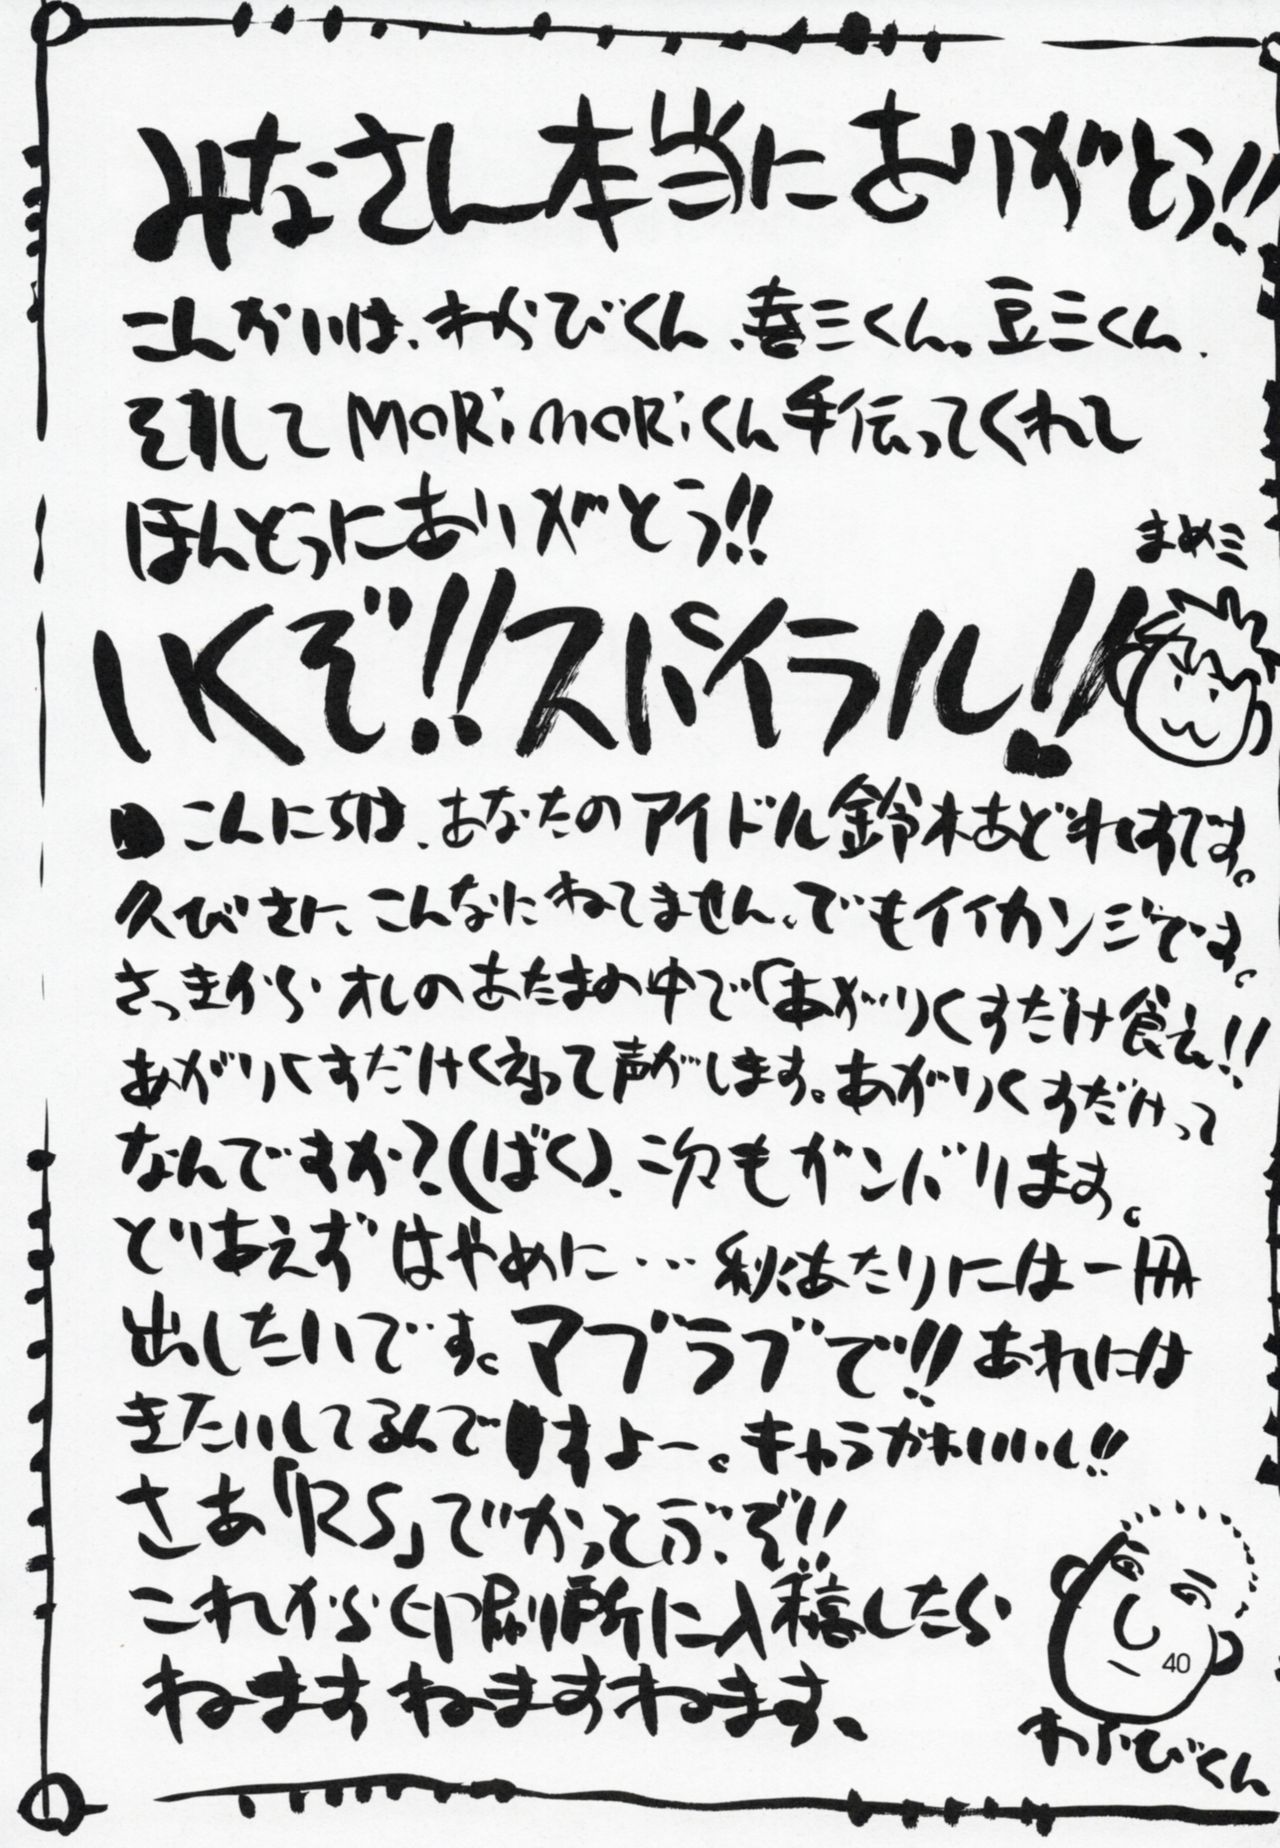 みなさん本当にありがとう!!
こんかいは、わらびくん、喜三くん。豆三くん、
そして MORiMORiくん手伝ってくれて
ほんとうにありがとう!!
まめミ
いくぞ!!スパイラル!!
こんにちは、あなたのアイドル鈴木あどれはすです。
久びさに、こんなにねてません、でもイイカンジです。
さっきからオレのあたまの中で「あがりくすだけ食え!!
あがりくすだけくえって声がします。あがりくすだけって
なんですか?(ばく)、次もガンバリます。
とりあえずはやめに…秋あたりには一冊
出したいです。マブラブで!!あれには
きたいしてるんですよー。キャラかわいいし!!
さあ「RS」でかっとぶぞ!!
これから印刷所に入稿したら
ねます ねますねます、
40
わらびくん